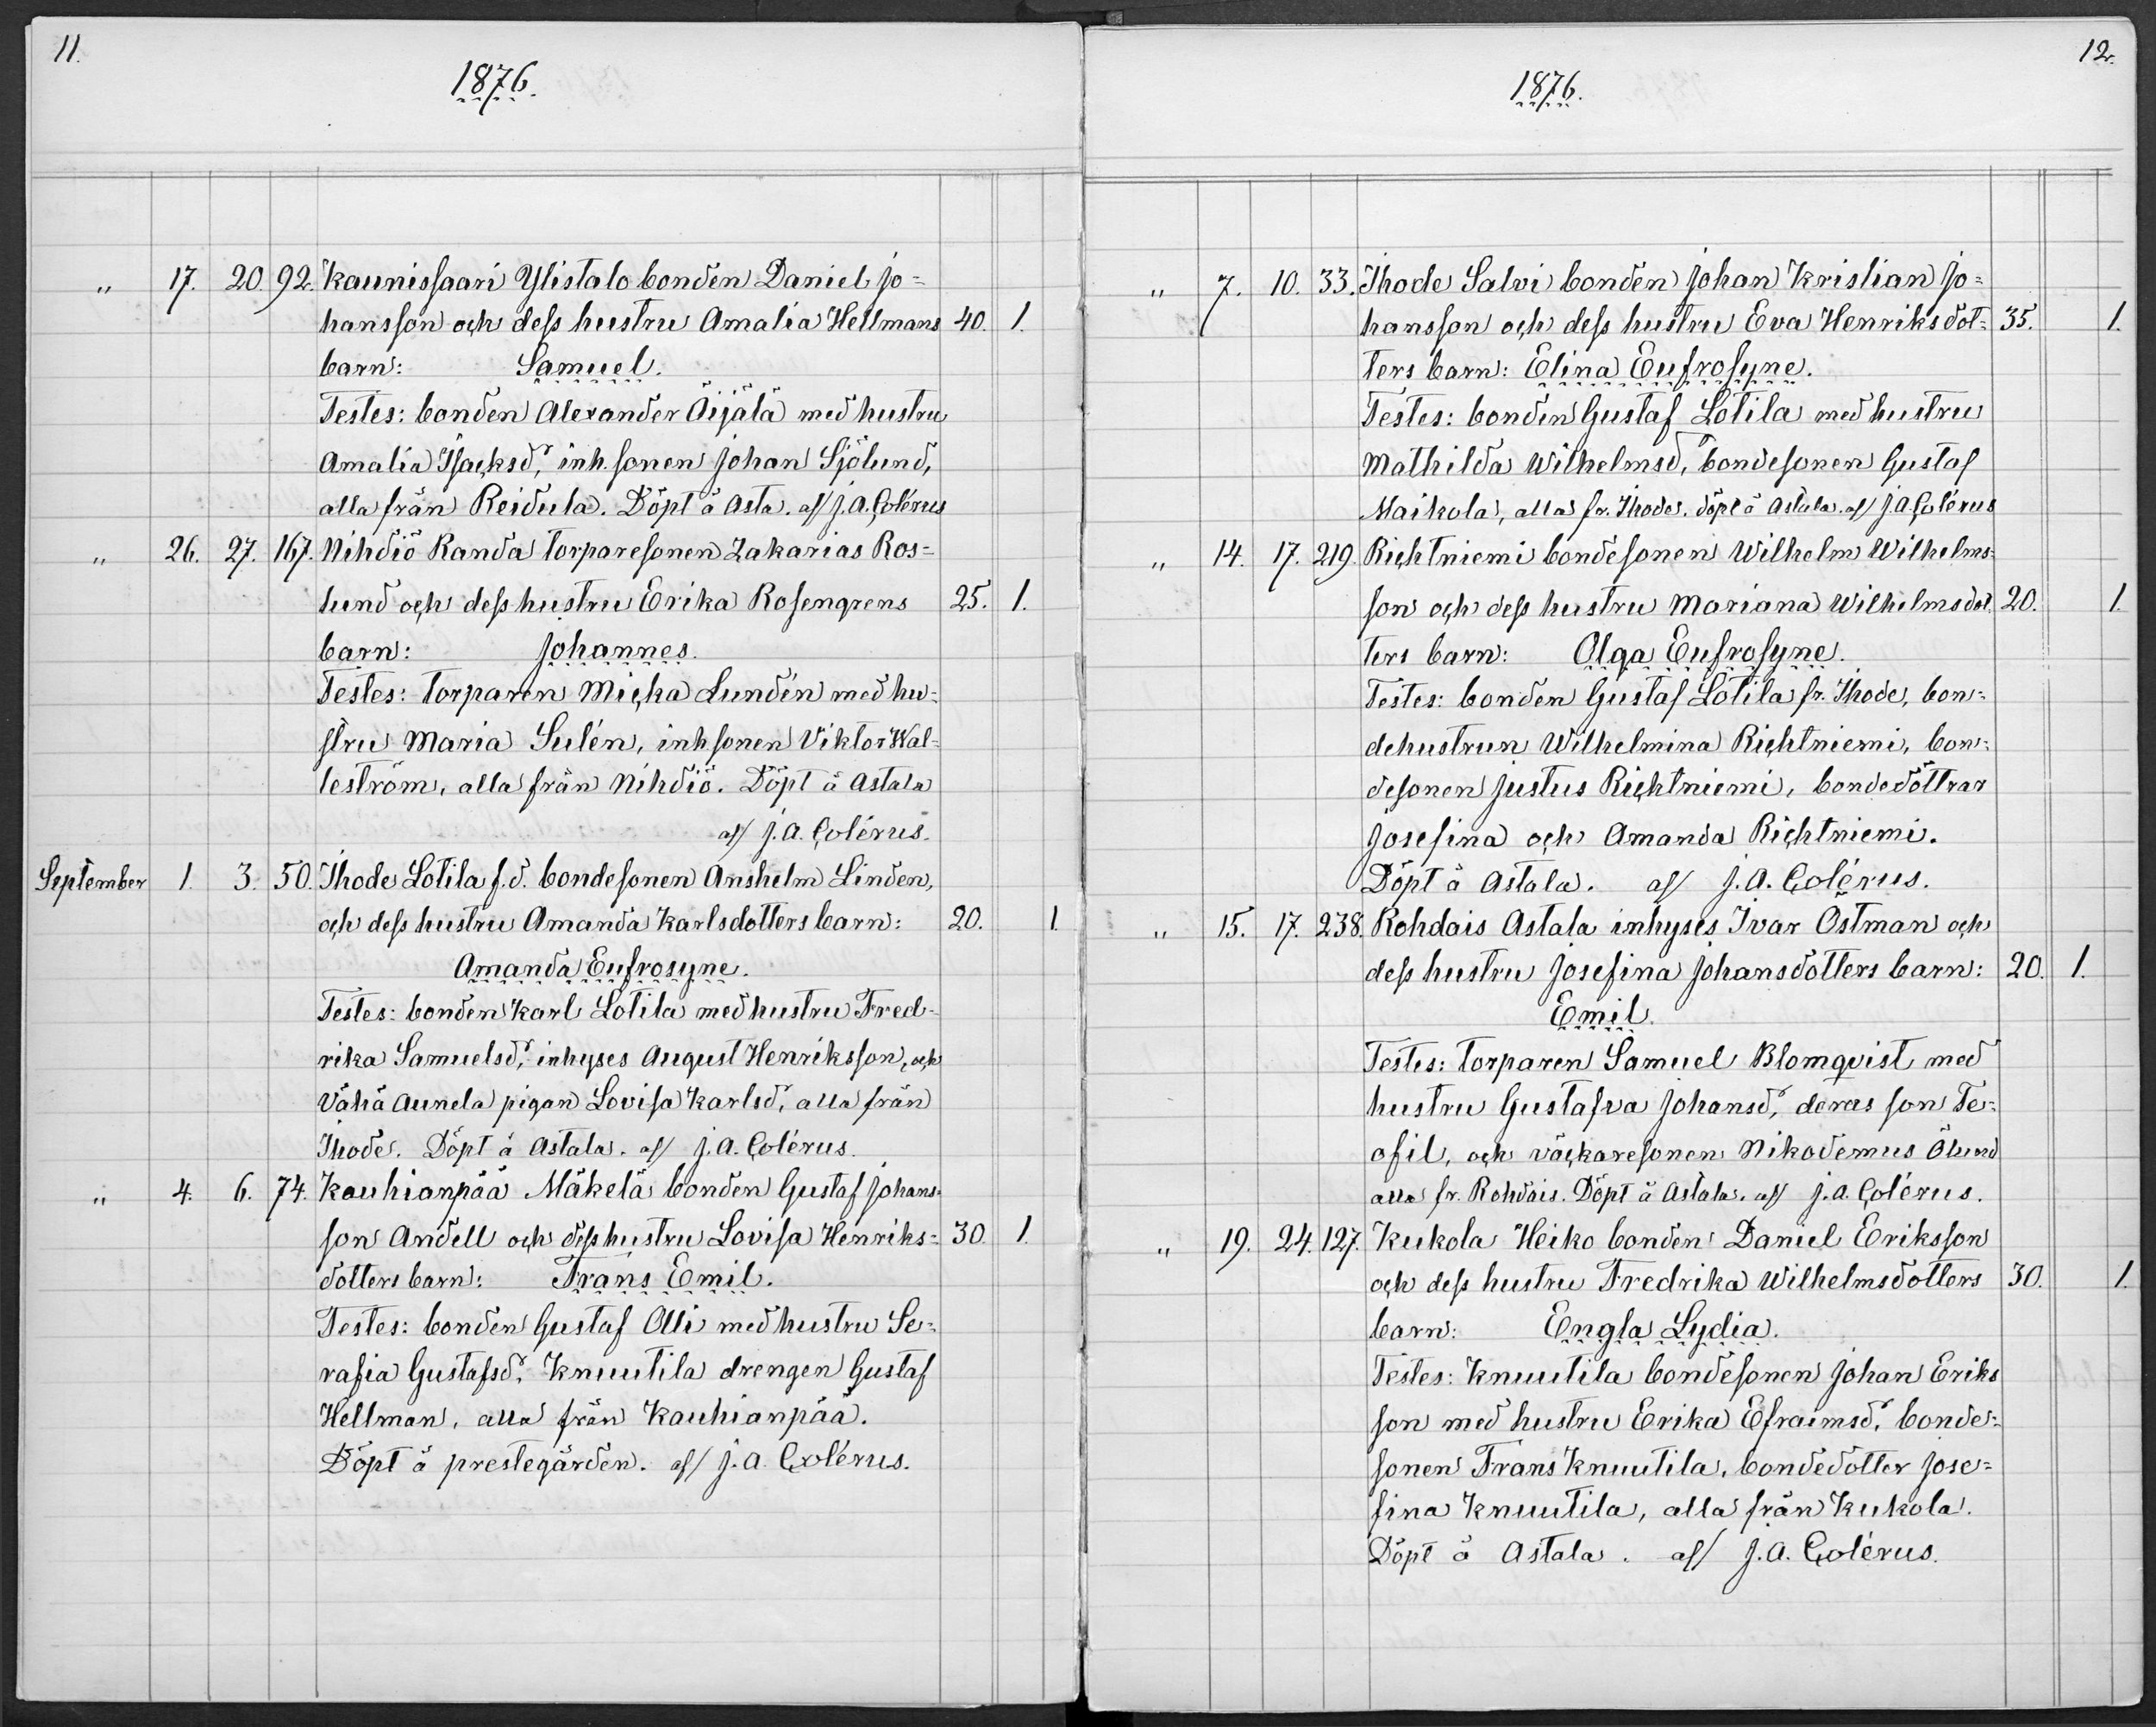 11.
1876.
" 17. 20. 92. Kaunissaari Ylistalo bonden Daniel Jo=
hansson och dess hustru Amalia Hellmans 40. 1.
barn: Samuel.
Testes: bonden Alexander Äijälä med hustru
Amalia Isacksd:r, inh. sonen Johan Sjölund,
alla från Reidula. Döpt å Asta. af J. A. Colérus
" 26. 27. 167. Nihdiö Randa torparesonen Zakarias Ros=
lund och dess hustru Erika Rosengrens 25. 1.
barn: Johannes.
Testes: torparen Micka Lundén med hu=
stru Maria Sulén, inh sonen Viktor Wal=
leström, alla från Nihdiö. Döpt å Astala
af J. A. Colérus.
September 1. 3. 50. Ihode Lotila f.d. bondesonen Anshelm Linden,
och dess hustru Amanda Karlsdotters barn: 20. 1.
Amanda Eufrosyne.
Testes: bonden Karl Lotila med hustru Fred=
rika Samuelsd:r, inhyses August Henriksson, och
Vähä Aunela pigan Lovisa Karlsd:r, alla från
Ihode. Döpt å Astala. af J. A. Colérus.
" 4. 6. 74. Kauhianpää Mäkelä bonden Gustaf Johans=
son Andell och dess hustru Lovisa Henriks= 30. 1.
dotters barn: Frans Emil.
Testes: bonden Gustaf Olli med hustru Se=
rafia Gustafsd:r, Knuutila drengen Gustaf
Hellman, alla från Kauhianpää.
Döpt å prestegården. af J. A. Colérus.
12.
1876.
" 7. 10. 33. Ihode Salvi bonden Johan Kristian Jo=
hansson och dess hustru Eva Henriksdot= 35. 1.
ters barn: Elina Eufrosyne.
Testes: bonden Gustaf Lotila med hustru
Mathilda Wilhelmsd:r, bondesonen Gustaf
Maikola, alla fr. Ihode. Döpt å Astala. af J A Colérus
" 14. 17. 219. Richtniemi bondesonen Wilhelm Wilhelms=
son och dess hustru Mariana Wilhelmsdot 20. 1.
ters barn: Olga Eufrosyne.
Testes: bonden Gustaf Lotila fr. Ihode, bon=
dehustrun Wilhelmina Richtniemi, bon=
desonen Justus Richtniemi, bondedöttrar
Josefina och Amanda Richtniemi.
Döpt å Astala. af J. A. Colérus.
" 15. 17. 238. Rohdais Astala inhyses Ivar Östman och
dess hustru Josefina Johansdotters barn: 20. 1.
Emil.
Testes: torparen Samuel Blomqvist med
hustru Gustafva Johansd:r, deras son Te=
ofil, och väckaresonen Nikodemus Ölund
alla fr. Rohdais. Döpt å Astala. af J. A. Colérus.
" 19. 24. 127. Kukola Heiko bonden Daniel Eriksson
och dess hustru Fredrika Wilhelmsdotters 30. 1.
barn: Engla Lydia.
Testes: Knuutila bondesonen Johan Eriks
son med hustru Erika Efraimsd:r, bonde=
sonen Frans Knuutila, bondedotter Jose=
fina Knuutila, alla från Kukola.
Döpt å Astala. af J. A. Colérus.